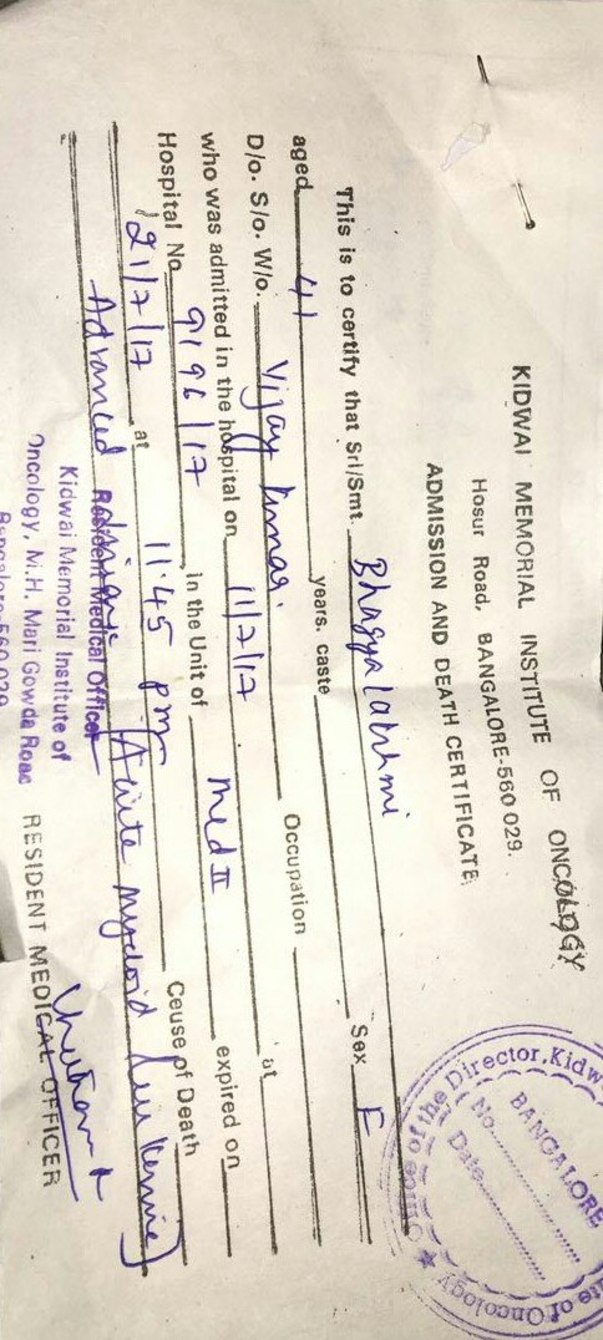 KIDWAI MEMORIAL INSTITUTE OF ONCOLOGY
Hosur Road, BANGALORE-560 029.
ADMISSION AND DEATH CERTIFICATE
This is to certify that Sri/Smt. Bhagyalakshmi Sex F
aged 41 years. caste
D/o. S/o. W/o. Vijay Kumar. Occupation
who was admitted in the hospital on 11/7/17 at
Hospital No 9196/17 in the Unit of Med II expired on
21/7/17 at 11.45 pm Ceuse of Death
Advanced (Acute myeloid leukemia)
Resident Medical Officer
Kidwai Memorial Institute of
Oncology, M.H. Mari Gowda Road
Bangalore-560 029
RESIDENT MEDICAL OFFICER
Office of the Director, Kidw
BANGALORE
No.
Date
te of Oncology